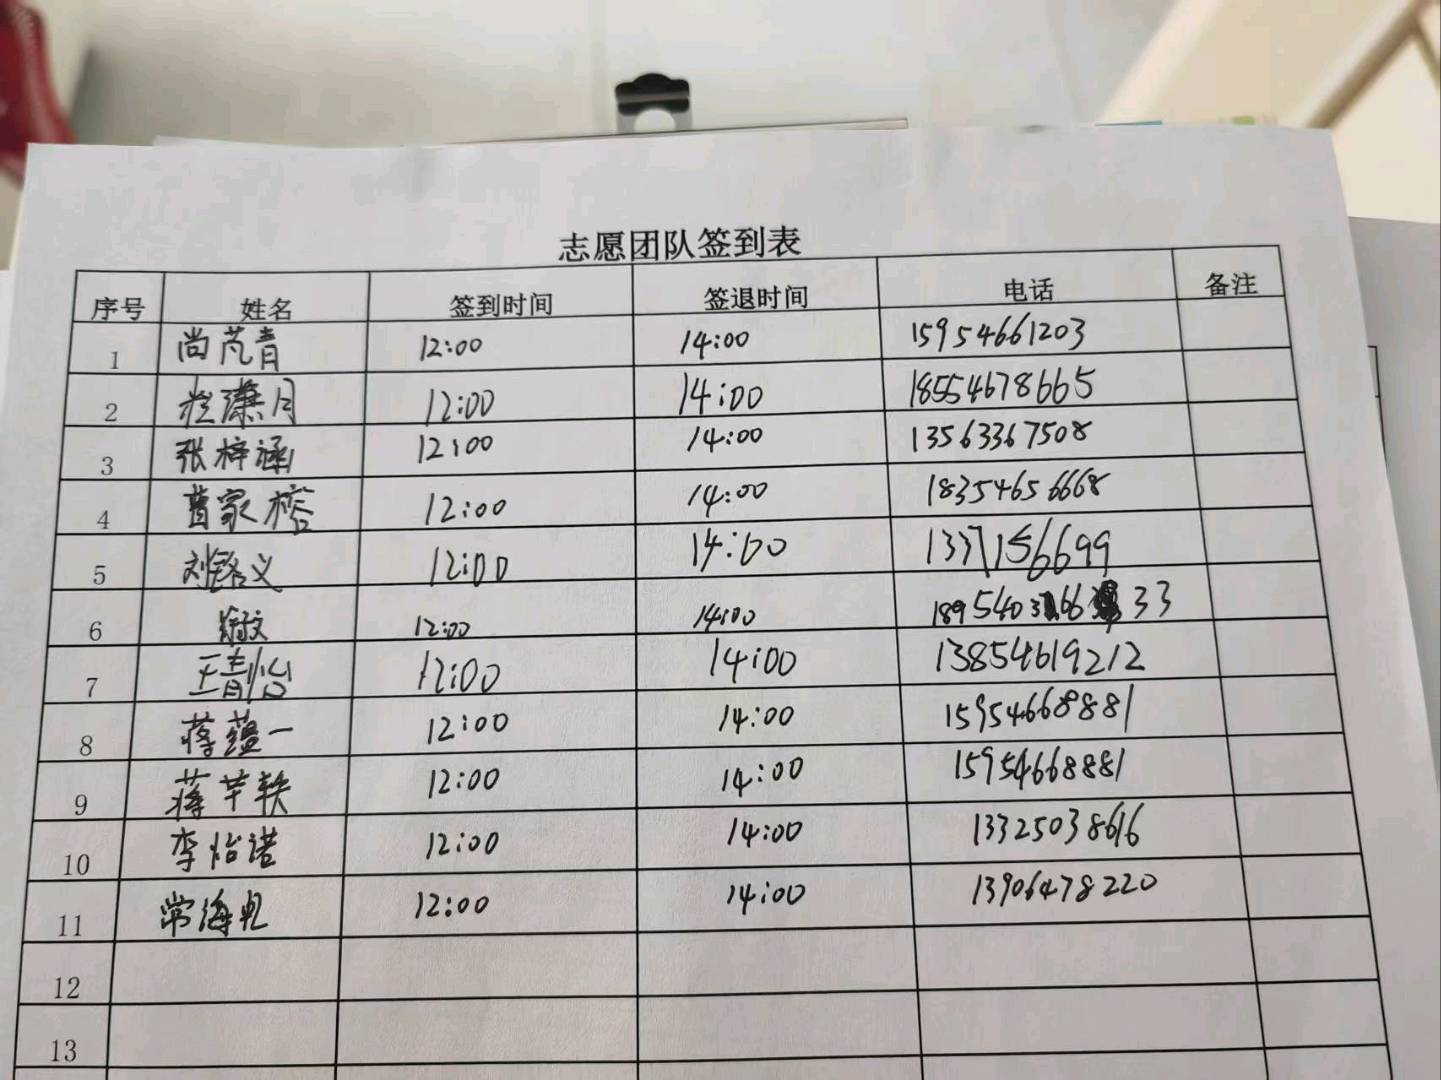 志愿团队签到表
序号 姓名 签到时间 签退时间 电话 备注
1 尚芃青 12:00 14:00 15954661203
2 12:00 14:00 18554678665
3 张梓涵 12:00 14:00 13563367508
4 曹家榕 12:00 14:00 18354656668
5 刘铭义 12:00 14:00 13371566699
6 12:00 14:00
7 王靖怡 12:00 14:00 13854619212
8 蒋蕴一 12:00 14:00 15954668881
9 蒋芊轶 12:00 14:00 15954668881
10 李怡诺 12:00 14:00 13325038616
11 常海 12:00 14:00 13906478220
12
13